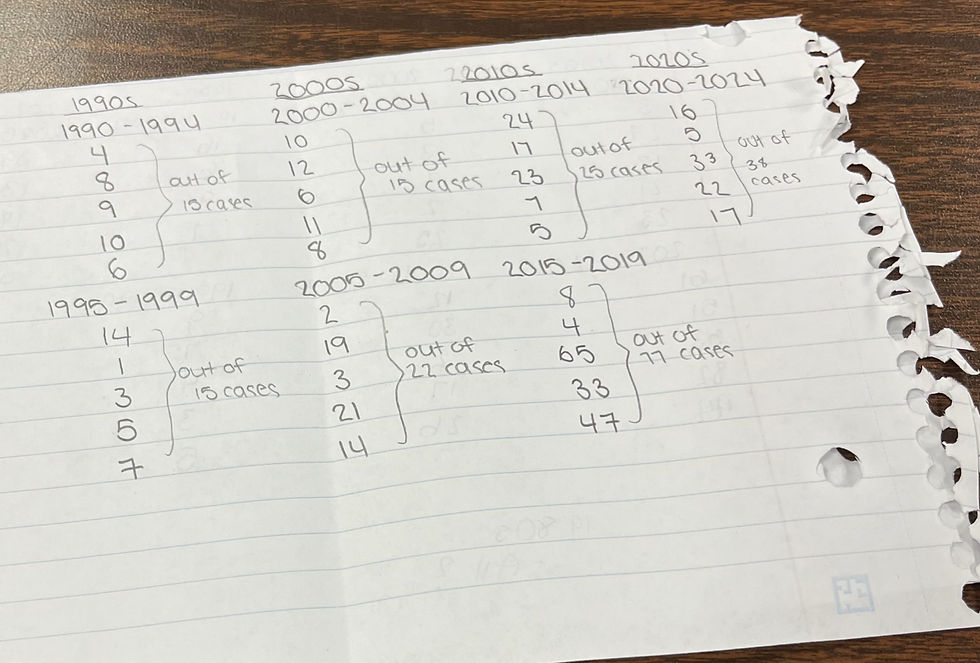 1990s
1990-1994
4
8
9
10
6
out of
15 cases
1995-1999
14
1
3
5
7
out of
15 cases
2000s
2000-2004
10
12
6
11
8
out of
15 cases
2005-2009
2
19
3
21
14
out of
22 cases
2010s
2010-2014
24
17
23
7
5
out of
25 cases
2015-2019
8
4
65
33
47
out of
77 cases
2020s
2020-2024
16
5
33
22
17
out of
38
cases